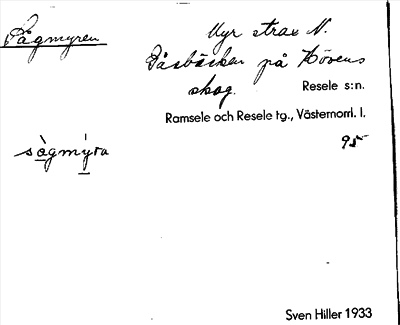 Sågmyren
Myr strax N.
på Hövens
skog. Resele s:n.
Ramsele och Resele tg., Västernorrl. l.
sògmýra
95
Sven Hiller 1933